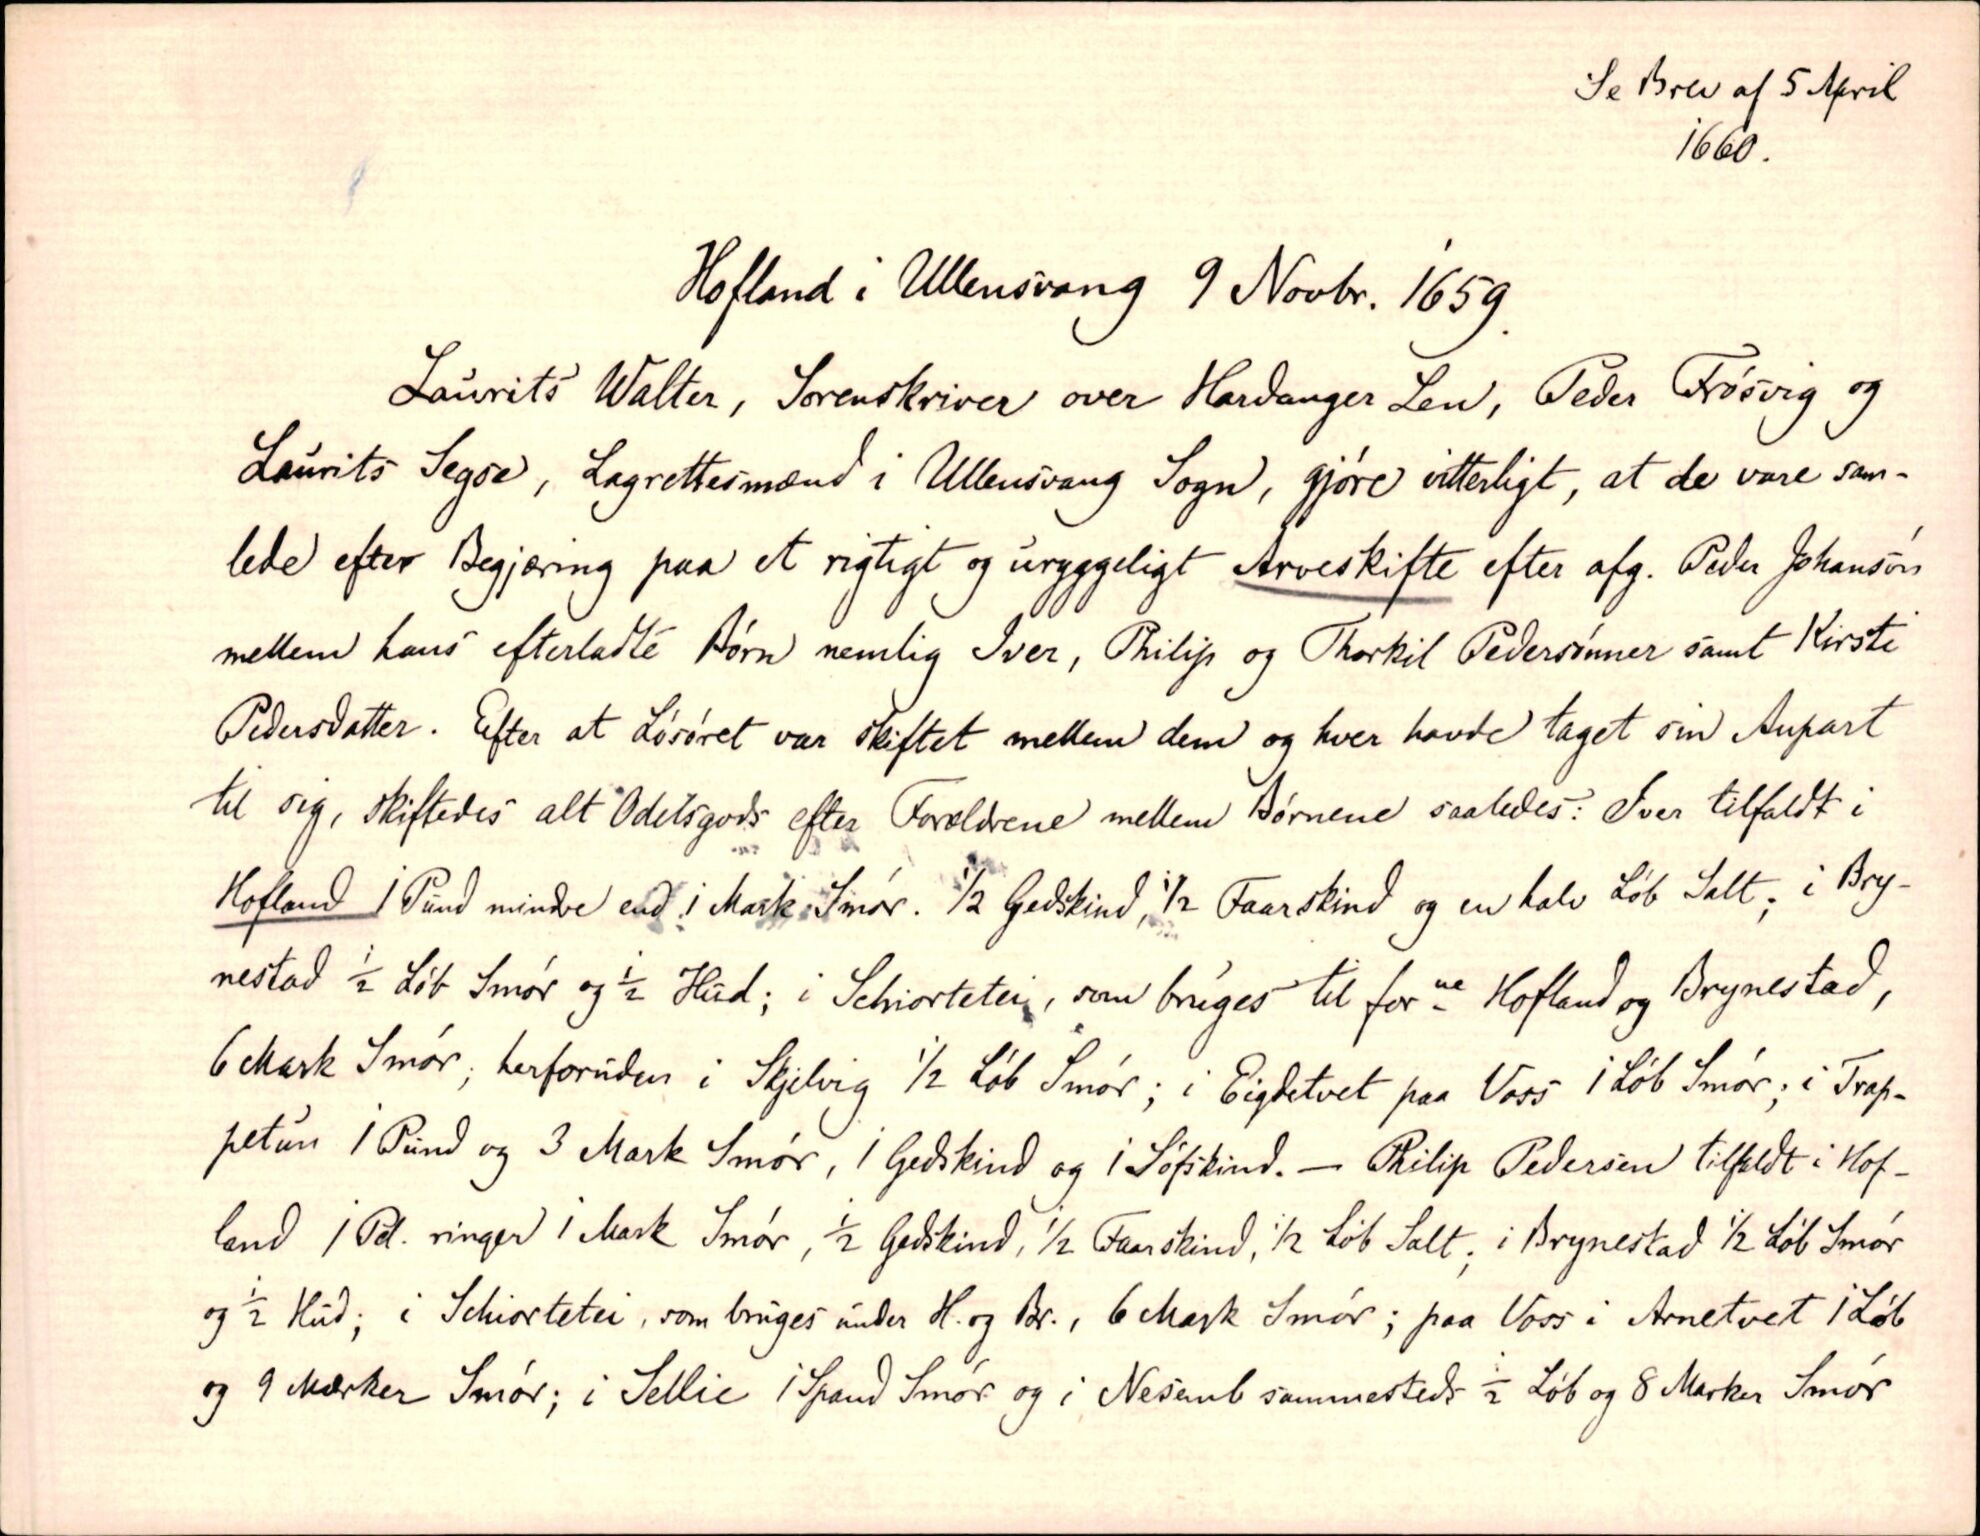 Se Brev af 5 April
1660.
Hofland i Ullensvang 9 Novbr. 1659.
Laurits Walter, Sorenskriver over Hardanger Len, Peder Frøsvig og
Laurits Segse, Lagrettesmænd i Ullensvang Sogn, gjøre vitterligt, at de vare sam-
lede efter Begjæring paa et rigtigt og uryggeligt Arveskifte efter afg. Peder Johansøn
mellem hans efterladte Børn nemlig Iver, Philip og Thorkil Pedersønner samt Kirsti
Pedersdatter. Efter at Løsøret var skiftet mellem dem og hver havde taget sin Anpart
til sig, skiftedes alt Odelsgods efter Forældrene mellem Børnene saaledes: Iver tilfaldt i
Hofland 1 Pund mindre end 1 Mark Smør. 1/2 Gedskind, 1/2 Faarskind og en halv Løb Salt; i Bry-
nestad 1/2 Løb Smør og 1/2 Hud; i Schiortetei, som bruges til forne Hofland og Brynestad,
6 Mark Smør; herforuden i Skjelvig 1/2 Løb Smør; i Eigdetvet paa Voss 1 Løb Smør; i Trap-
petun 1 Pund og 3 Mark Smør, 1 Gedskind og 1 Løfskind. — Philip Pedersen tilfaldt i Hof-
land 1 Pd. ringer 1 Mark Smør, 1/2 Gedskind, 1/2 Faarskind, 1/2 Løb Salt; i Brynestad 1/2 Løb Smør
og 1/2 Hud; i Schiortetei, som bruges under H. og Br., 6 Mark Smør; paa Voss i Arnetvet 1 Løb
og 9 Mærker Smør; i Sellie 1 Spand Smør og i Nesemb sammesteds 1/2 Løb og 8 Marker Smør